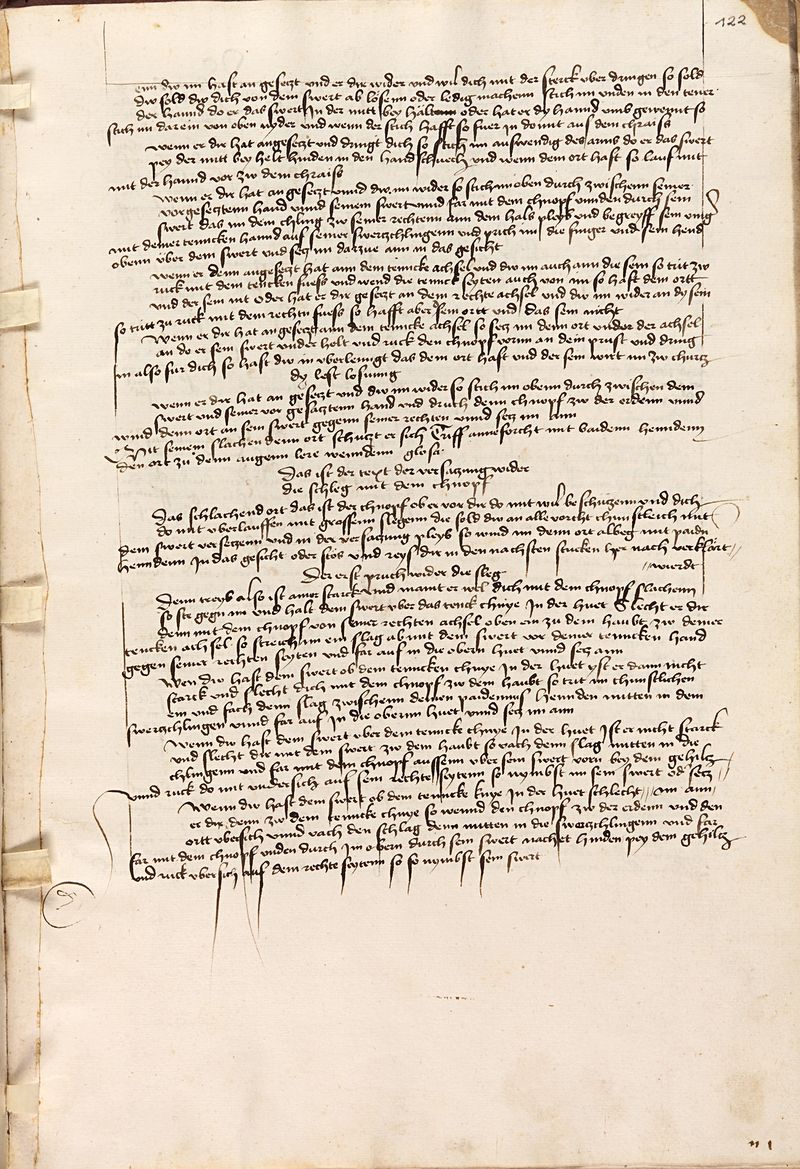 122
enn dw im hast an gesetzt und er dir wider und wil dich mit der sterck uber dringen so sold
dw sold dw dich von dem swert ab lösenn oder ledig machenn stich im unden in den tener
der hannd do er das swert In der mitt bey haltenn oder hat er dy hannd umb gewennt so
stich im darein von oben nyder und wenn der stich hafft so fuer in do mit auf dem chraiss
wenn er dir hat angesetzt und dringt dich so stich im auswendig des arms do er das swert
pey der mitt bey helt hinden in den handschuech und wenn dem ort haft so lauf mit
mit der hannd vor zw dem chraiss
Wenn er dir hat an gesetzt unnd dw im wider so stich im oben durch zwischenn seiner
vorgesetztenn hand unnd seinem swert unnd far mit dem chnopf unnden durch sein
swert das im dein chling zw seiner rechtenn ann dem hals pleyb und begreyff sein
mit deiner tenncken hannd auf seiner swertzchlingenn und prich im die finger und sein hend
obenn über dem swert und setz im darzue ann in das gesicht
wenn er denn angesetzt hat ann dem tenncke achsel und dw im auch ann die sein so trit zw
ruck mit dem tencken fuess und wend die tennck seyten auch von im so haft dein ortt
und der sein nit Oder hat er dir gesetzt an dem rechte achsel und dw im wider an dy sein
so tritt zu ruck mit dem rechtn fuess so hafft aber dein ortt und das sein nicht
Wenn er dir hat angesetzt ann dem tenncke achsel so setz im denn ort under der achsel
an do er sein swert under helt und ruck den chnopf vornn an dein prust und dring
in also fur dich so hast dw in uberlenngt das dein ort haft und der sein wirt im zw churtz
dy lest losunng
wenn er dir hat an gesetzt und dw im wider so stich im obenn durch zwischen dem
swert und seiner vor gesatztenn hand und druck denn chnopf zw der erdenn unnd
wind denn ort an sein swert gegenn seiner rechten unnd setz im ann
Mit seinem slachen denn ort schutzt er sich Triff anne forcht mit baidenn henndenn
den ort zu denn augenn lere wenndenn glosa
Das ist der text der versatzung wider
die schleg mit dem chnopf
Das schlachend ort das ist der chnopf ob er vor dir do mit wil beschutzenn und dich
do mit uberlauffen mit grossenn slegenn die sold dw an alle vorcht chunstleich mit
dem swert versetzenn und in der versatzung pleyb so wind im denn ort albeg mit paidn
henndenn In das gesicht oder stös und reys dir in den nachsten stucken hye nach verklärt
wierdt
Der erst pruch wider die sleg
Denn treyb also ist ainer starck und maint er wel dich mit dem chnopf slachenn
so ste gegn im und halt dein swert uber das tenck chnye In der huet Slecht er dir
denn mit dem chnopf von seiner rechten achsel oben ein zu dem haubt zw deiner
tencken achsel so streich im ein slag ab mit dem swert vor deiner tenncken hand
gegen seiner rechten seyten und far auf in die obern huet unnd setz ann
Wen dw hast dein swert ob dem tenncken chnye In der huet yst er dann nicht
starck und slecht dich mit dem chnopf zw dem haubt so trit im chunstlichen
ein und fach denn slag zwischenn deinen paidennus hennden mitten in dein
swertzchlingen unnd far auf In die obernn huet unnd setz im ann
Wenn dw hast dein swert uber dem tennck chnye In der huet Ist er nicht starck
und slecht dir mit dem swert zw dem haubt so vach denn slag mitten in die
chlingenn und far mit dem chnopf aussenn uber sein swert vorn bey dem gehiltz
unnd ruck do mit undersich auf sein rechte seytenn so nymbst im sein swert od setz
Wenn dw hast dein swert ob dem tenncke knye In der huet schlecht im ann
er dir denn zw dem tenncke chnye so wennd den chnopf zw der erdenn und den
ortt ubersich unnd vach den schlag denn mitten in die swertzchlingenn und far
far mit dem chnopf unden durch Im obern durch sein swert nachet hinden pey dem gehiltz
und ruck ubersich auf dem rechte seytenn so so nymbst sein swert